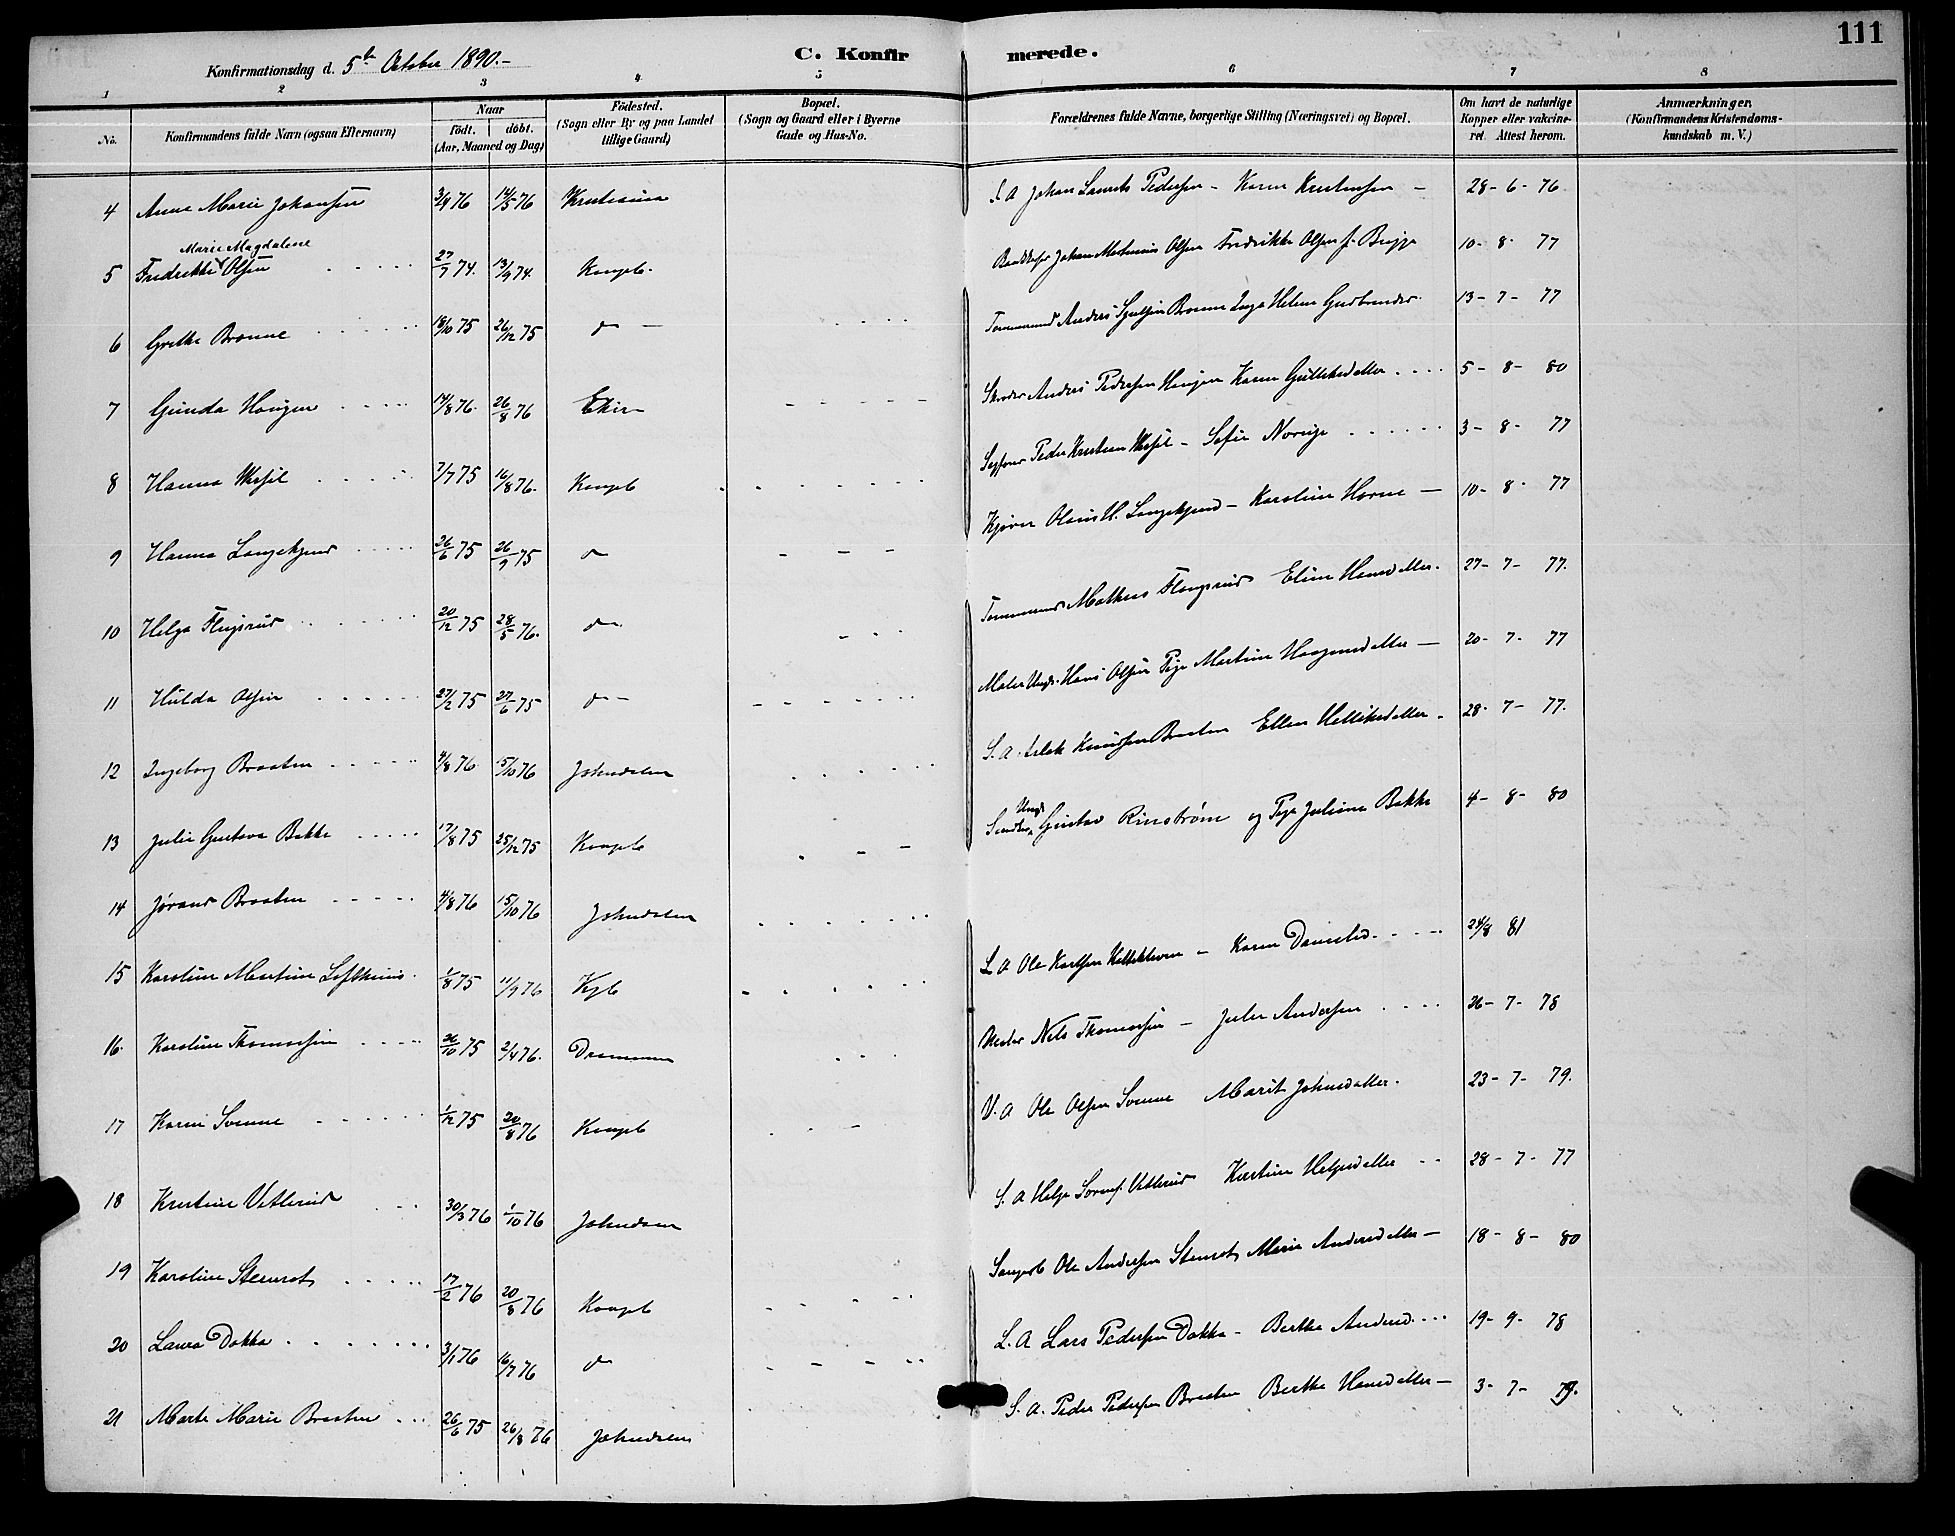 111
Konfirmationsdag d. 5te October 1890.-
C. Konfir merede.
1 2 3 4 5 6 7 8
No.
Konfirmandens fulde Navn (ogsaa Efternavn)
Naar
födt. döbt.
(Aar, Maaned og Dag)
Födested.
(Sogn eller By og paa Landet
tillige Gaard)
Bopæl.
(Sogn og Gaard eller i Byerne
Gade og Hus-No.
Forældrenes fulde Navne, borgerlige Stilling (Næringsvei) og Bopæl.
Om havt de naturlige
Kopper eller vakcine-
ret. Attest herom.
Anmærkninger.
(Konfirmandens Kristendoms-
kundskab m. V.)
4 Anna Marie Johansen 3/9 76 14/5 76 Kristiania S. A Johan Laurits Pedersen - Karen Kristensen - 28-6-76.
Marie Magdalene
5 Fredrikke Olsen 27/7 74. 13/9 74. Kongsb. Johan Martinius Olsen Fredrikke Olsen f. Brigge 10-8-77
6 Grethe Bronne 18/10 75 26/12 75 do - Tømmermd Anders Bronne Inga Helene Gudbrandsd. 13-7-77
7 Gunda Haugen 14/8 76. 26/8 76 Eker Anders Pedersen Haugen Karen Gulliksdatter 5-8-80
8 Hanna 7/7 75 16/8 76. Kongsb Peder Kristian - Sofie Norvig 3-8-77
9 Hanna Langekjend 26/6 75 26/9 75 do Olaus H. Langekjend - Karoline Horne - 10-8-77
10 Helga Flugsrud 20/12 75 28/5 76. do Tømmermd Mathias Flugsrud Eline Hansdatter. 27-7-77.
11 Hulda Olsen 27/2 75 27/6 75 do - Maler Ungk. Hans Olsen Pige Martine Haagensdatter - 20-7-77
12 Ingeborg Braaten 4/8 76 15/10 76 Johndalen S. A. Aslak Knudsen Braaten Ellen Helliksdatter. 28-7-77.
13 Julie Gustava Bakke 17/8 75 25/12 75 Kongsb Ungk Gustav Rinström og Pige Juliane Bakke 4-8-80
14 Jörand Braaten 4/8 76 15/10 76 Johndalen
15 Karoline Martine 1/8 75 11/9 76 Kgb L A Ole - Karen Danielsd. 24/8 81
16. Karoline Thomassen 26/10 75 2/4 76. Drammen Nils Thomassen - Julie Andersen 26-7-78
17 Karen Somme 1/12 75 20/8 76 Kongsb V. A Ole Olsen Somme Marit Johnsdatter. 23-7-79.
18 Kristine Vetlerud 30/3 76 1/10 76 Johndalen S. A Helge Vetlerud Kristine Helgesdatter 28-7-77
19 Karoline Stenrot 17/2 76 20/8 76 Kongsb Ole Andersen Stenrot Marie Andersdatter - 18-8-80
20 Laura Dokka 3/1 76 16/7 76 do L. A Lars Pedersen Dokka - Berthe Andersd. 19-9-78
21 Marte Marie Braaten 26/6 75 26/8 76 Johndalen S. A. Peder Pedersen Braaten Berthe Hansdatter - 3-7-79.